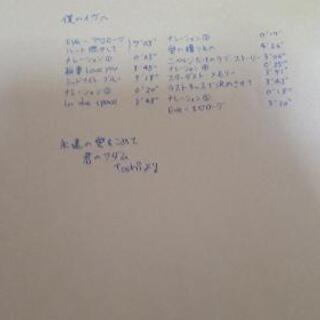 僕のイヴへ
Eve - プロローグ
ハート燃やして 7'05"
ナレーション① 0'23"
Love you 3'45"
ミッドナイト ブルー 3'18"
ナレーション② 0'20"
In the space 3'48"
ナレーション③ 0'19"
4'26"
ラブ・ストーリー 3'04"
ナレーション④ 0'25"
スターダスト メモリー 3'41"
ラストキッスで決めさせて 3'43"
ナレーション⑤ 0'18"
Eve - エピローグ 3'20"
永遠の愛をこめて
君のアダム
Toshiより